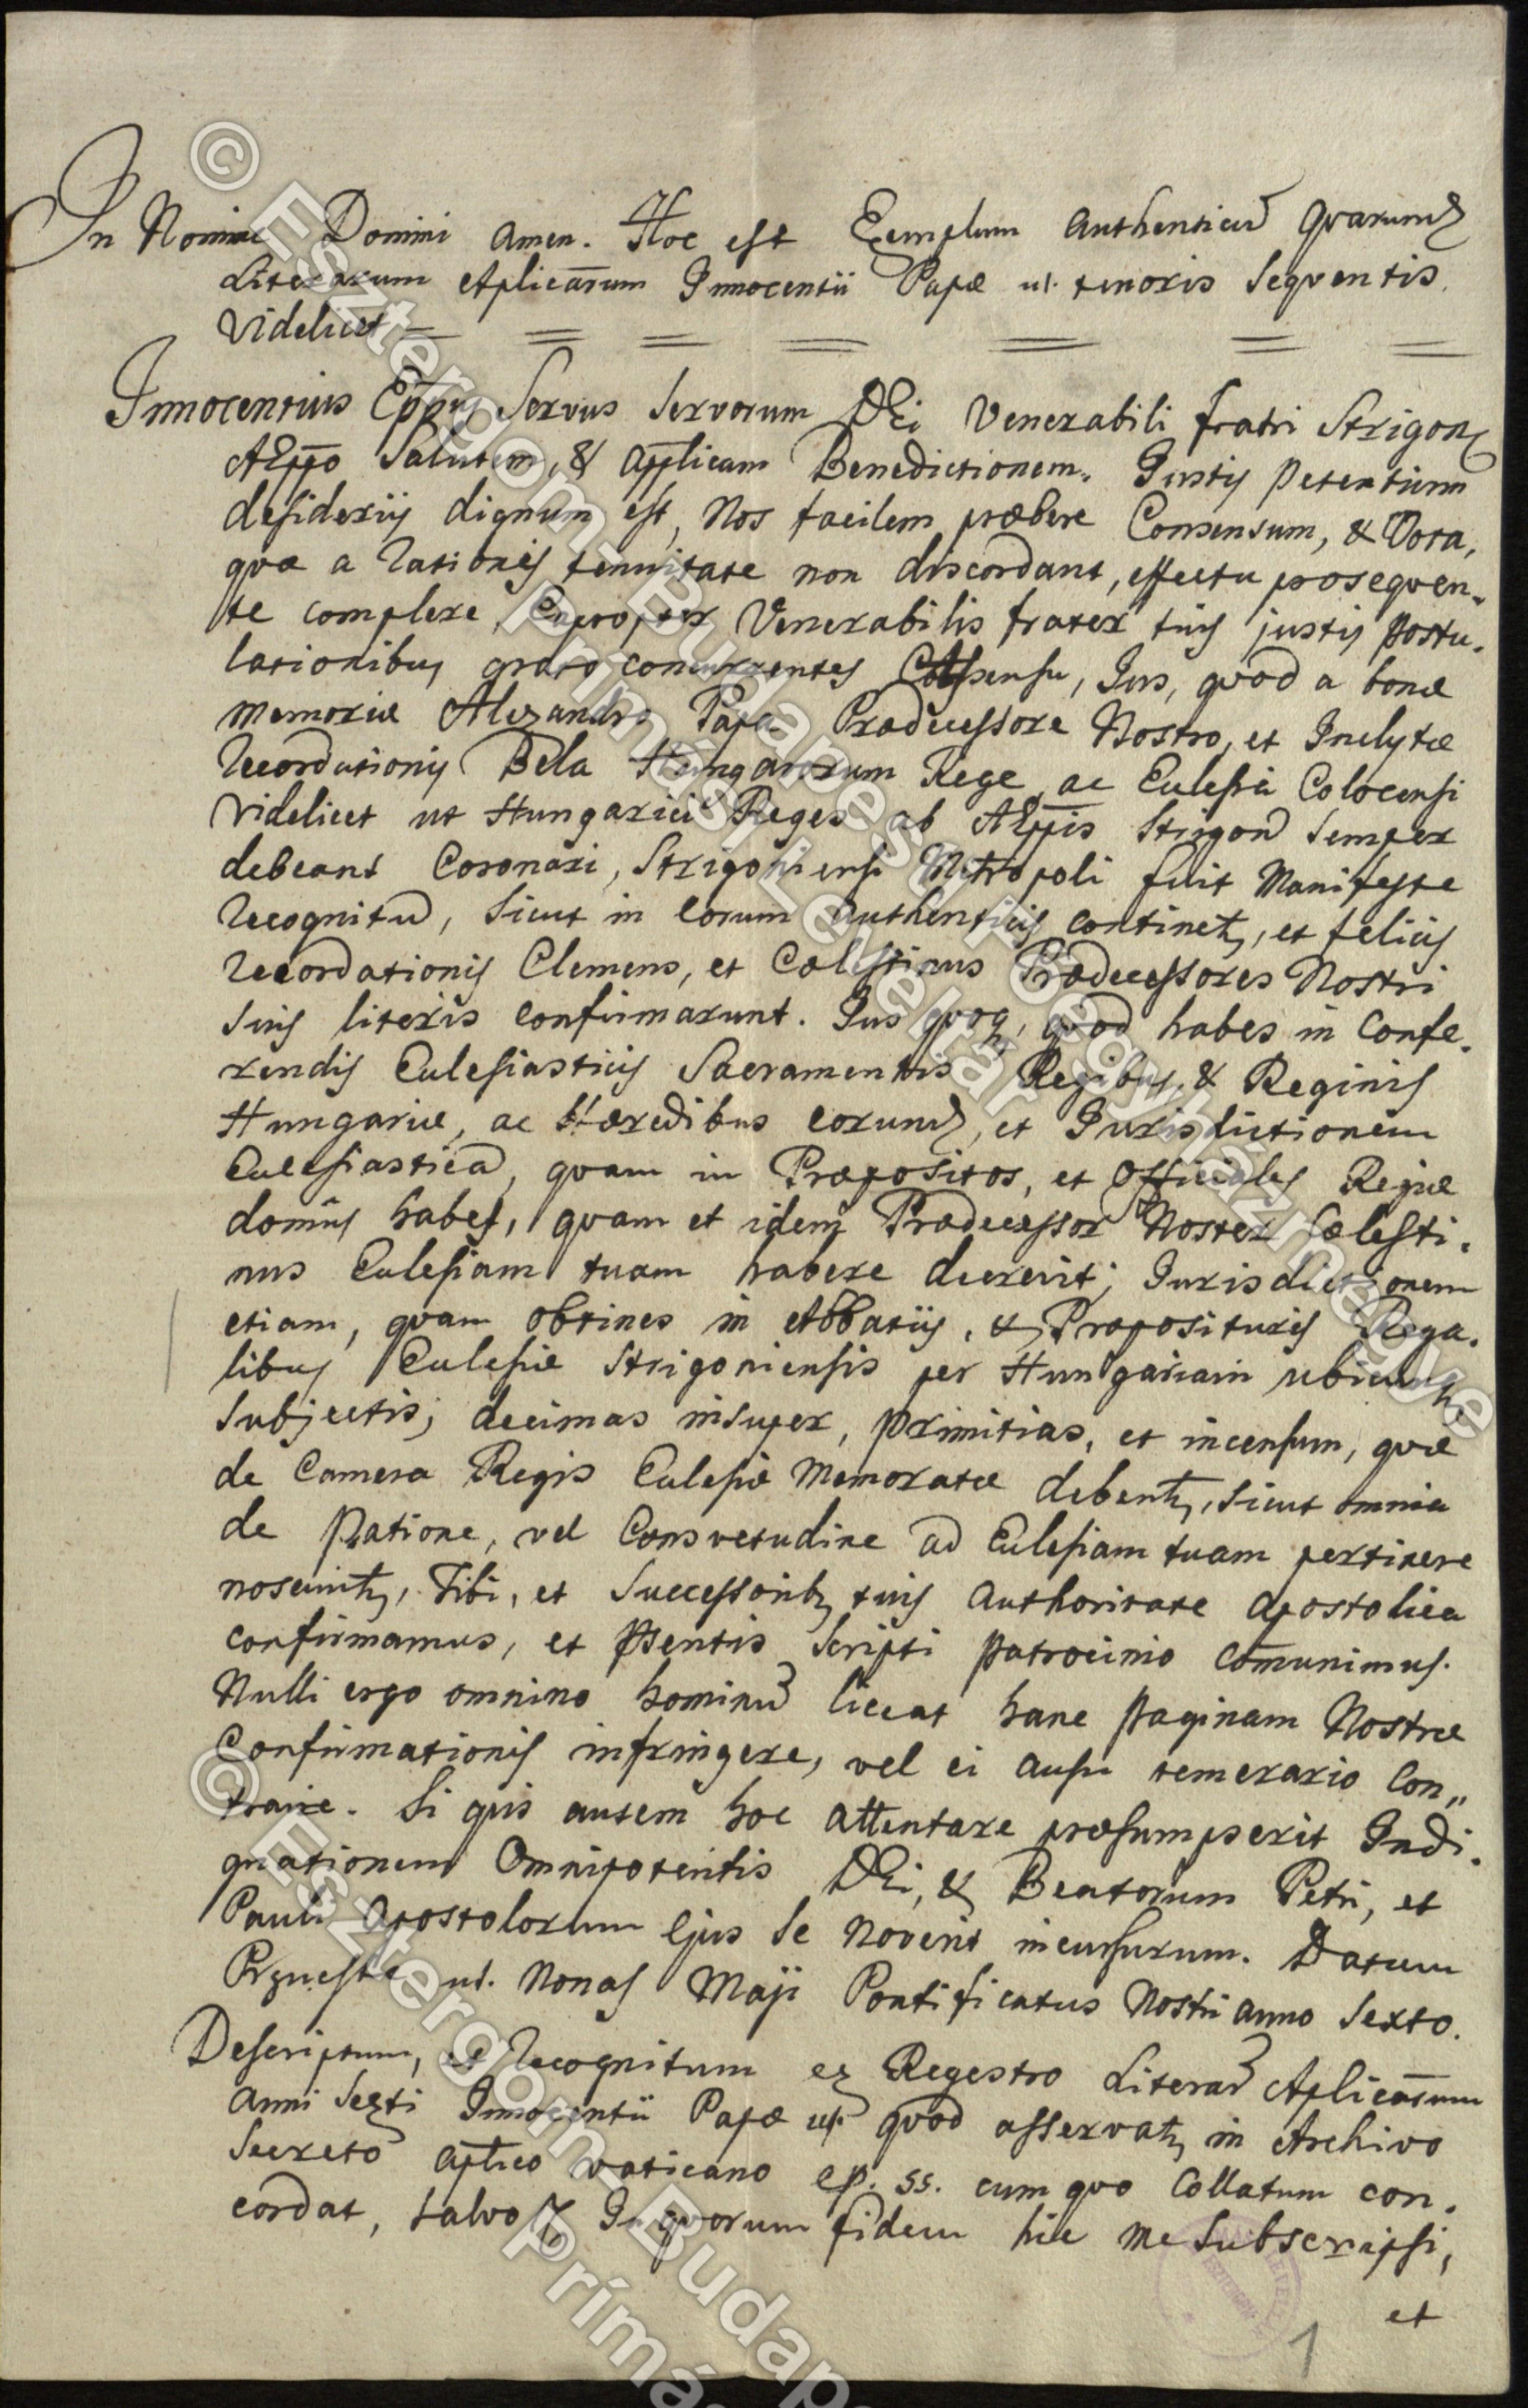 In Nomine Domini amen. Hoc est Exemplum authenticū qvarumd̄
Literarum Aplicārum Innocentii Papæ III. tenoris Seqventis
Videlicet
Innocentius Eppus Servus Servorum DEi Venerabili fratri Strigon
AEppo Salutem, & applicam Benedictionem. Justis petentium
desideriis dignum est, Nos facilem præbere Consensum, & Vota,
qvæ a rationis tramite non discordant, effectu proseqven-
te complere, Eapropter Venerabilis frater tuis justis postu-
lationibus grato concurrentes Assensu, Jus, qvod a bonæ
memoriæ Alexandro Papa Prædecessore Nostro, et Inclytæ
recordationis Bela Hungarorum Rege, ac Eclesia Colocensi
videlicet ut Hungarici Reges ab AEppis Strigon̄ Semper
debeant Coronari, Strigoniensi Metropoli fuit Manifeste
recognitū, Sicut in eorum authenticis continet, et felicis
recordationis Clemens, et Cælestinus Prædecessores Nostri
Suis literis confirmarunt. Jus qvoq, qvod habes in Confe-
rendis Eclesiasticis Sacramentis Regibus, & Reginis
Hungariæ, ac Hæredibus eorund̄, et Jurisdictionem
Eclesiasticā, qvam in Præpositos, et Officiales Regiæ
domus habes, qvam et idem Prædecessor Noster Cælesti-
nus Eclesiam tuam habere decrevit; Jurisdictionem
etiam, qvam obtines in Abbatiis, & Præposituris Rega-
libus Eclesiæ Strigoniensis per Hungariam ubicunq
Subjectis; decimas insuper, primitias, et incensum, qvæ
de Camera Regis Eclesiæ Memoratæ debent, Sicut omnia
de Ratione, vel Consvetudine ad Eclesiam tuam pertinere
noscunt, Tibi, et Successorib tuis Authoritate Apostolica
confirmamus, et Psentis Scripti patrocinio com̄unimus.
Nulli ergo omnino hominū liceat hanc paginam Nostræ
Confirmationis infringere, vel ei ausu temerario Con„
traire. Si qvis autem hoc attentare præsumpserit Indi-
gnationem Omnipotentis DEi, & Beatorum Petri, et
Pauli Apostolorum Ejus Se Noverit incursurum. Datum
nonas Maji Pontificatus Nostri anno Sexto.
Descriptum, et recognitum ex Regestro Literar̄ Aplicārum
anni Sexti Innocentii Papæ III. qvod asservat in Archivo
Secreto aplico vaticano ep. 55. cum qvo Collatum con-
cordat, Salvo In qvorum fidem hic me Subscripsi,
et
1
© Esztergom-Budapesti Főegyházmegye
Prímási Levéltár
© Esztergom-Budape
Prímá